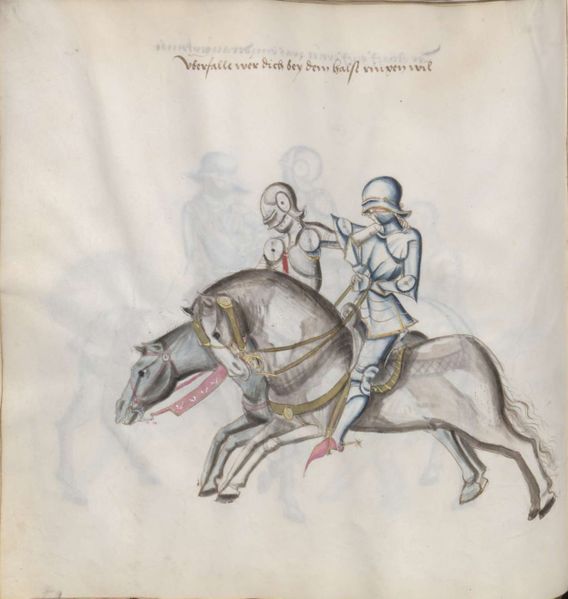 Vberfalle wer dich bey dem halse ringen wil